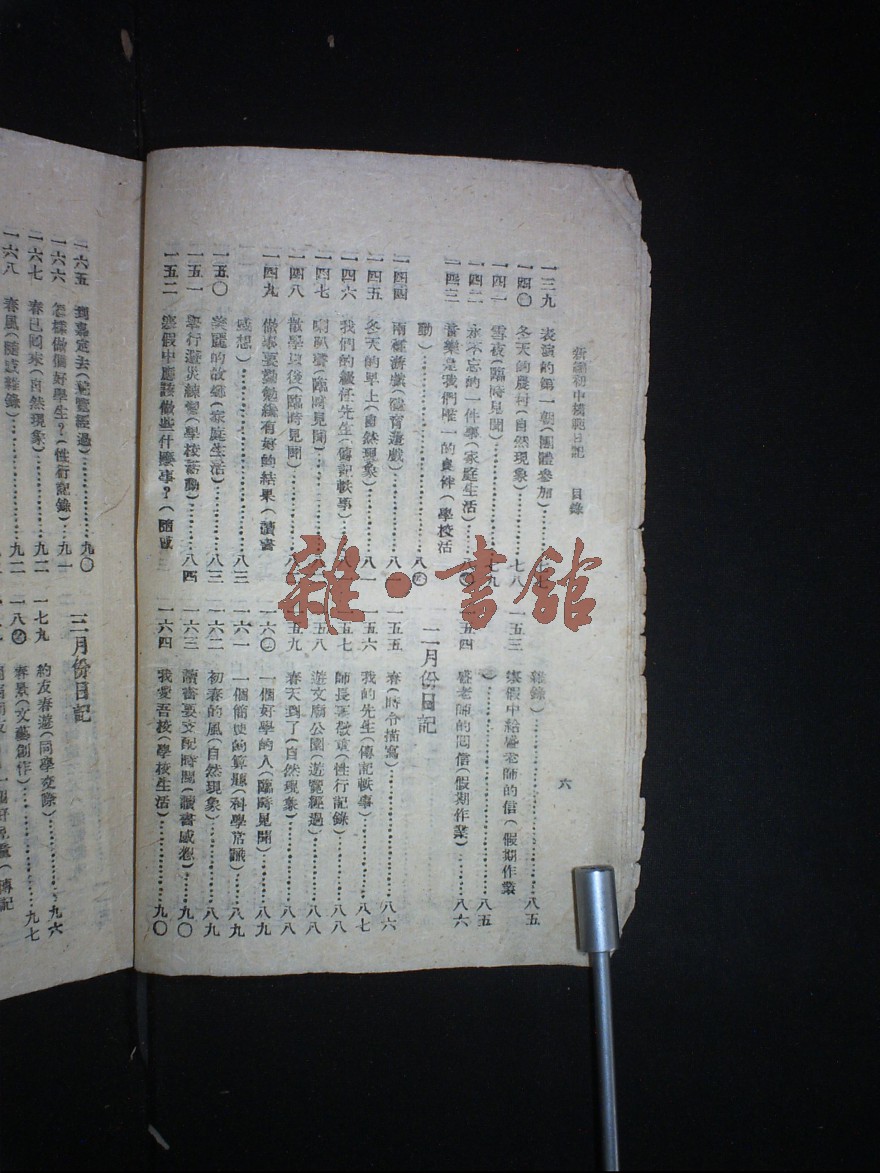 新編初中模範日記 目錄
六
一三九 表演的第一朝(團體參加)……七七
一四〇 冬天的農村(自然現象)……七八
一四一 雪夜(臨時見聞)……七九
一四二 永不忘的一件事(家庭生活)……八〇
一四三 音樂是我們唯一的良伴(學校活
動)……八〇
一四四 兩種游戲(體育遊戲)……八一
一四五 冬天的早上(自然現象)……八一
一四六 我們的級任先生(傳記軼事)
一四七 喇叭聲(臨時見聞)
一四八 散學以後(臨時見聞)
一四九 做事要勤勉纔有好的結果(讀書
感想)……八三
一五〇 美麗的故鄉(家庭生活)……八三
一五一 舉行遊災練習(學校活動)……八四
一五二 寒假中應該做些什麼事?(隨感
雜錄)……八五
一五三 寒假中給盛老師的信(假期作業
)……八五
一五四 盛老師的回信(假期作業)……八六
二月份日記
一五五 春(時令描寫)……八六
一五六 我的先生(傳記軼事)……八七
一五七 師長要敬重(性行記錄)……八八
一五八 遊文廟公園(遊覽經過)……八八
一五九 春天到了(自然現象)……八八
一六〇 一個好學的人(臨時見聞)……八九
一六一 一個簡便的算題(科學常識)……八九
一六二 初春的風(自然現象)……八九
一六三 讀書要支配時間(讀書感想)……九〇
一六四 我愛吾校(學校生活)……九〇
一六五 到嘉定去(遊覽經過)……九〇
一六六 怎樣做個好學生?(性行記錄)……九一
一六七 春已回來(自然現象)……九二
一六八 春風(隨感雜錄)……九二
三月份日記
一七九 約友春遊(同學交際)……九六
一八〇 春景(文藝創作)……九七
雜·書館